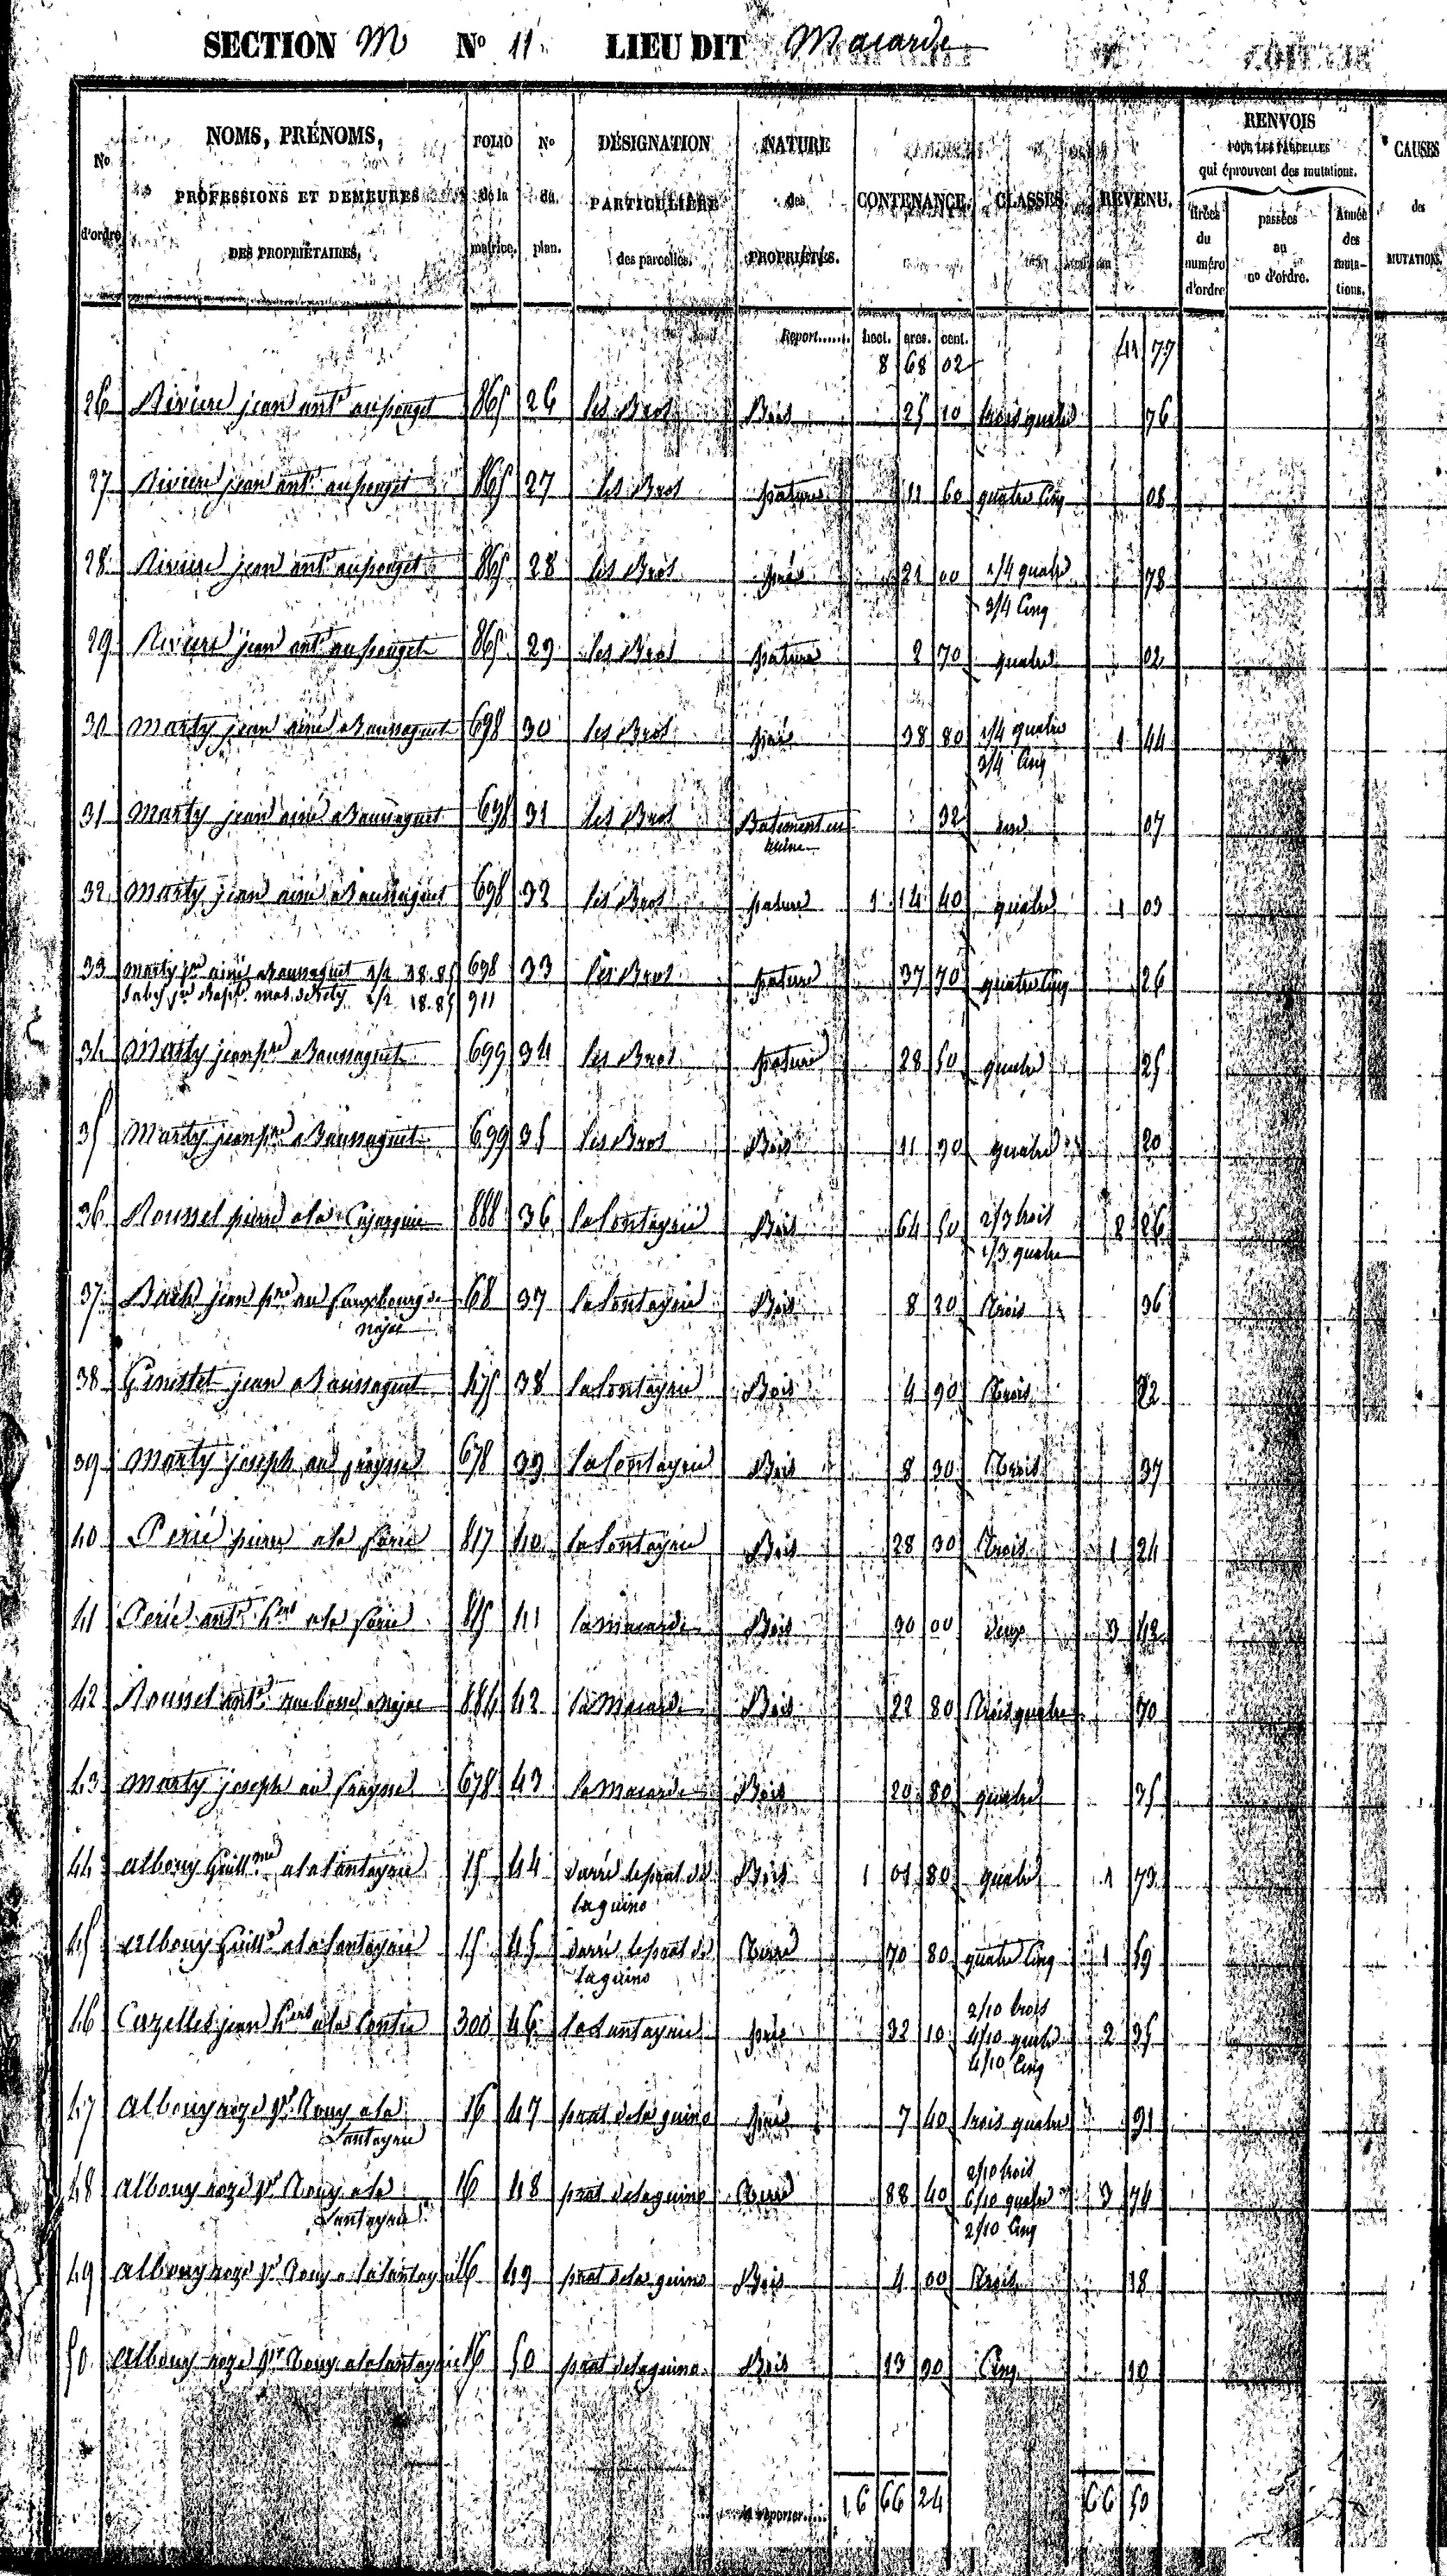 SECTION M N° 11. LIEU DIT Macarde
N° d'ordre
NOMS, PRÉNOMS,
PROFESSIONS ET DEMEURES
DES PROPRIÉTAIRES.
FOLIO de la matrice.
N° du plan.
DÉSIGNATION PARTICULIÈRE des parcelles.
NATURE des PROPRIÉTÉS.
CONTENANCE.
CLASSES.
REVENU.
RENVOIS
POUR LES PARCELLES
qui éprouvent des mutations.
tirées du numéro d'ordre
passées au n° d'ordre.
Année des muta-tions.
CAUSES des MUTATIONS.
Report...... hect. ares. cent.
8 68 02 41 77
26 Rivière jean ant.e au pouget 865 26 les Bros Bois 25 10 trois quatre 76
27 Rivière jean ant.e au pouget 865 27 les Bros pature 11 60 quatre Cinq 08
28 Rivière jean ant.e au pouget 865 28 les Bros pré 21 00 1/4 quatre 78
3/4 Cinq
29 Rivière jean ant.e au pouget 865 29 les Bros pature 2 70 quatre 02
30 Marty jean ainé a Baussaguet 698 30 les Bros pré 38 80 1/4 quatre 1 44
3/4 Cinq
31 Marty jean ainé a Baussaguet 698 31 les Bros Batiment en 32 07
Ruine
32 Marty jean ainé a Baussaguet 698 32 les Bros pature 1 14 40 quatre 1 03
33 Marty jn ainé a Baussaguet 1/2 18.85 698 33 les Bros pature 37 70 quatre Cinq 26
1/2 18.85 911
34 Marty jean pre a Baussaguet 699 34 les Bros pature 28 50 quatre 25
35 Marty jean pre a Baussaguet 699 35 les Bros Bois 11 90 quatre 20
36 Roussel pierre a la 888 36 la Lantayrie Bois 64 50 2/3 trois 2 26
1/3 quatre
37 Bach jean pre au fauxbourg de 68 37 la Lantayrie Bois 8 20 Trois 36
Najac
38 Ginestet jean a Baussaguet 475 38 la Lantayrie Bois 4 90 Trois 22
39 Marty joseph au 678 39 la Lantayrie Bois 8 30 Trois 37
40 Perié pierre a la 817 40 la Lantayrie Bois 28 30 Trois 1 24
41 Perié ant.e a la 815 41 la Macarde Bois 30 00 deux 3 42
42 Roussel ant.e Najac 884 42 la Macarde Bois 22 80 Trois quatre 70
43 Marty joseph au 678 43 la Macarde Bois 20 80 quatre 35
44 Albouy Guill.me a la Lantayrie 15 44 darré le prat de Bois 1 01 80 quatre 1 73
laguino
45 Albouy Guill.e a la Lantayrie 15 45 darré le prat de Terre 70 80 quatre Cinq 1 59
laguino
46 Cazelles jean a la 300 46 la Lantayrie pré 32 10 2/10 trois 2 35
4/10 quatre
4/10 Cinq
47 Albouy roze a la 16 47 prat de laguino pré 7 40 trois quatre 91
Lantayrie
48 Albouy roze a la 16 48 prat de laguino Terre 88 40 2/10 trois 3 74
6/10 quatre
Lantayrie 2/10 Cinq
49 Albouy roze a la Lantayrie 16 49 prat de laguino Bois 4 00 Trois 18
50 Albouy roze a la Lantayrie 16 50 prat de laguino Bois 13 90 Cinq 10
A reporter..... 16 66 24 66 50